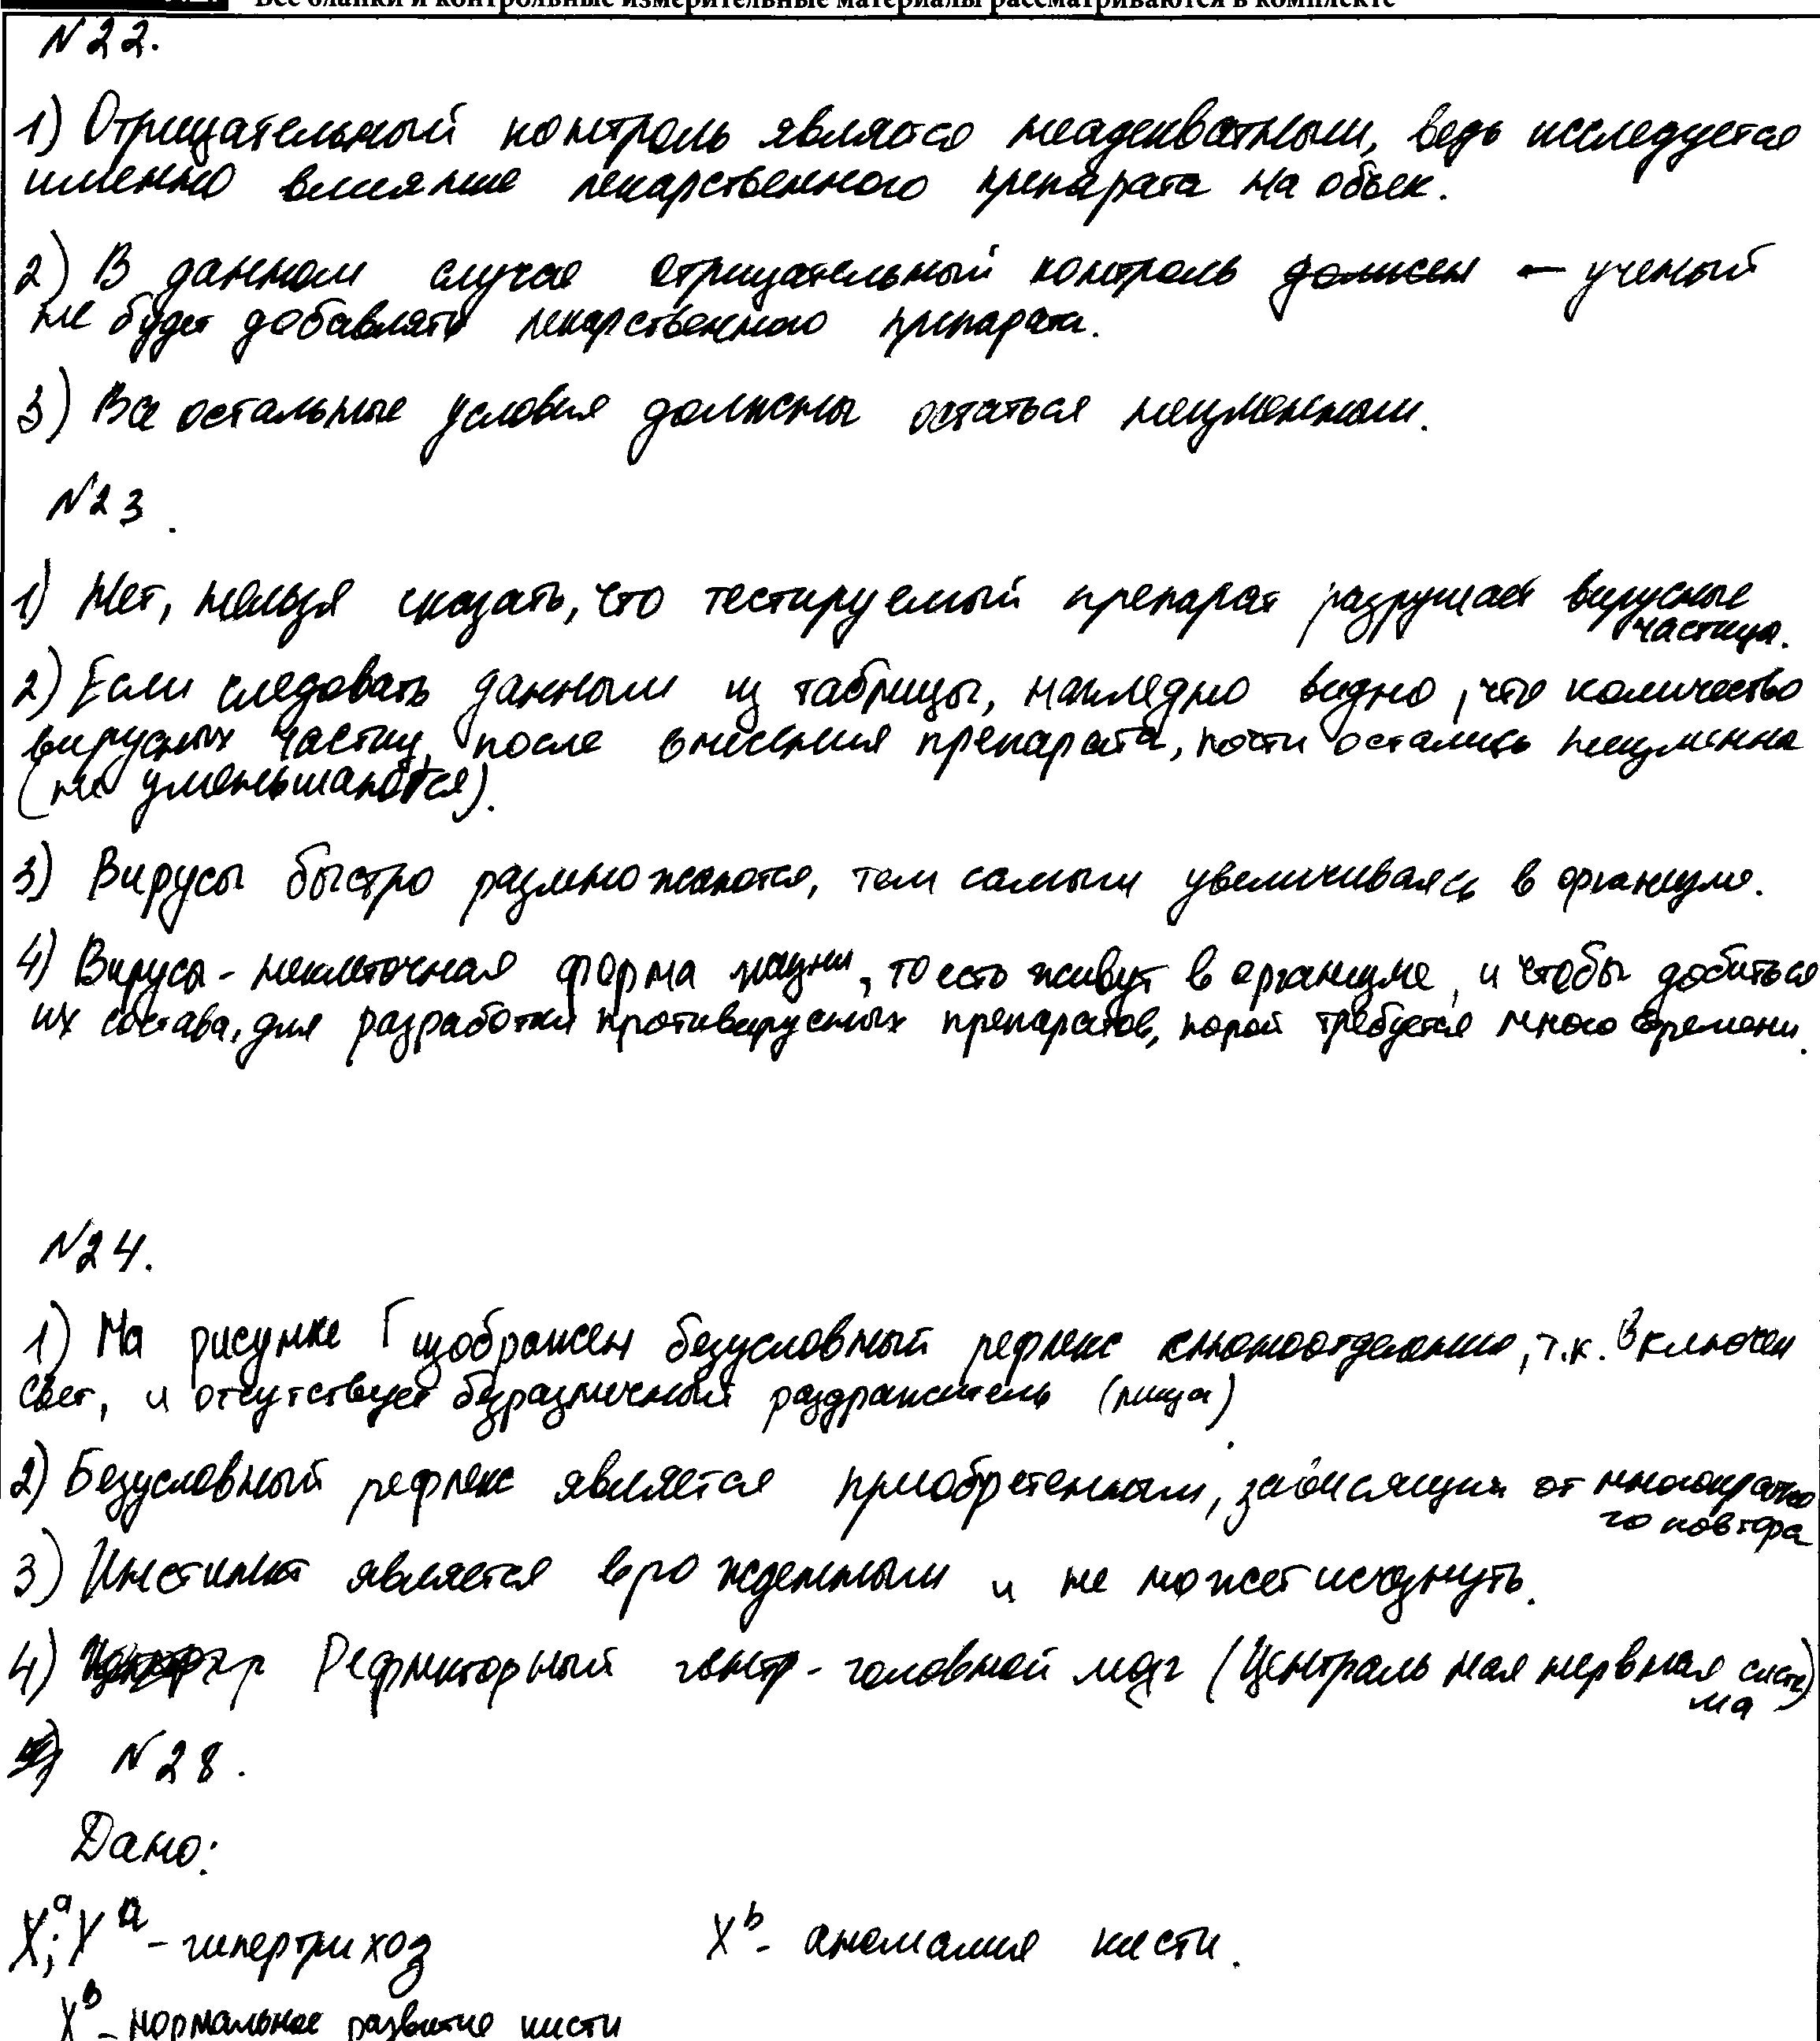 Все бланки и контрольные измерительные материалы рассматриваются в комплекте
N22.
1) Отрицательный контроль является неадекватным, ведь исследуется
именно влияние лекарственного препарата на объек.
2) В данном случае отрицательный контроль должен – ученый
не будет добавлять лекарственного препарата.
3) Все остальные условия должны остаться неизменными.
N23.
1) Нет, нельзя сказать, что тестируемый препарат разрушает вирусные
частицы.
2) Если следовать данным из таблицы, наглядно видно, что количество
вирусных частиц, после внесения препарата, почти осталось неизменна
(не уменьшаются).
3) Вирусы быстро размножаются, тем самым увеличиваясь в организме.
4) Вирусы - неклеточная форма жизни, то есть живут в организме, и чтобы добиться
их состава, для разработки противирусных препаратов, порой требуется много времени.
N24.
1) На рисунке Г изображен безусловный рефлекс слюноотделение, т.к. включен
свет, и отсутствует безразличный раздражитель (пища).
2) Безусловный рефлекс является приобретенным, зависящим от многократно
го повтора
3) Инстинкт является врожденным и не может исчезнуть.
4) Рефлекторный центр - головной мозг (Центральная нервная систе)
ма
N28.
Дано:
X^a; Y^a - гипертрихоз X^b - аномалия кисти.
X^B - нормальное развитие кисти